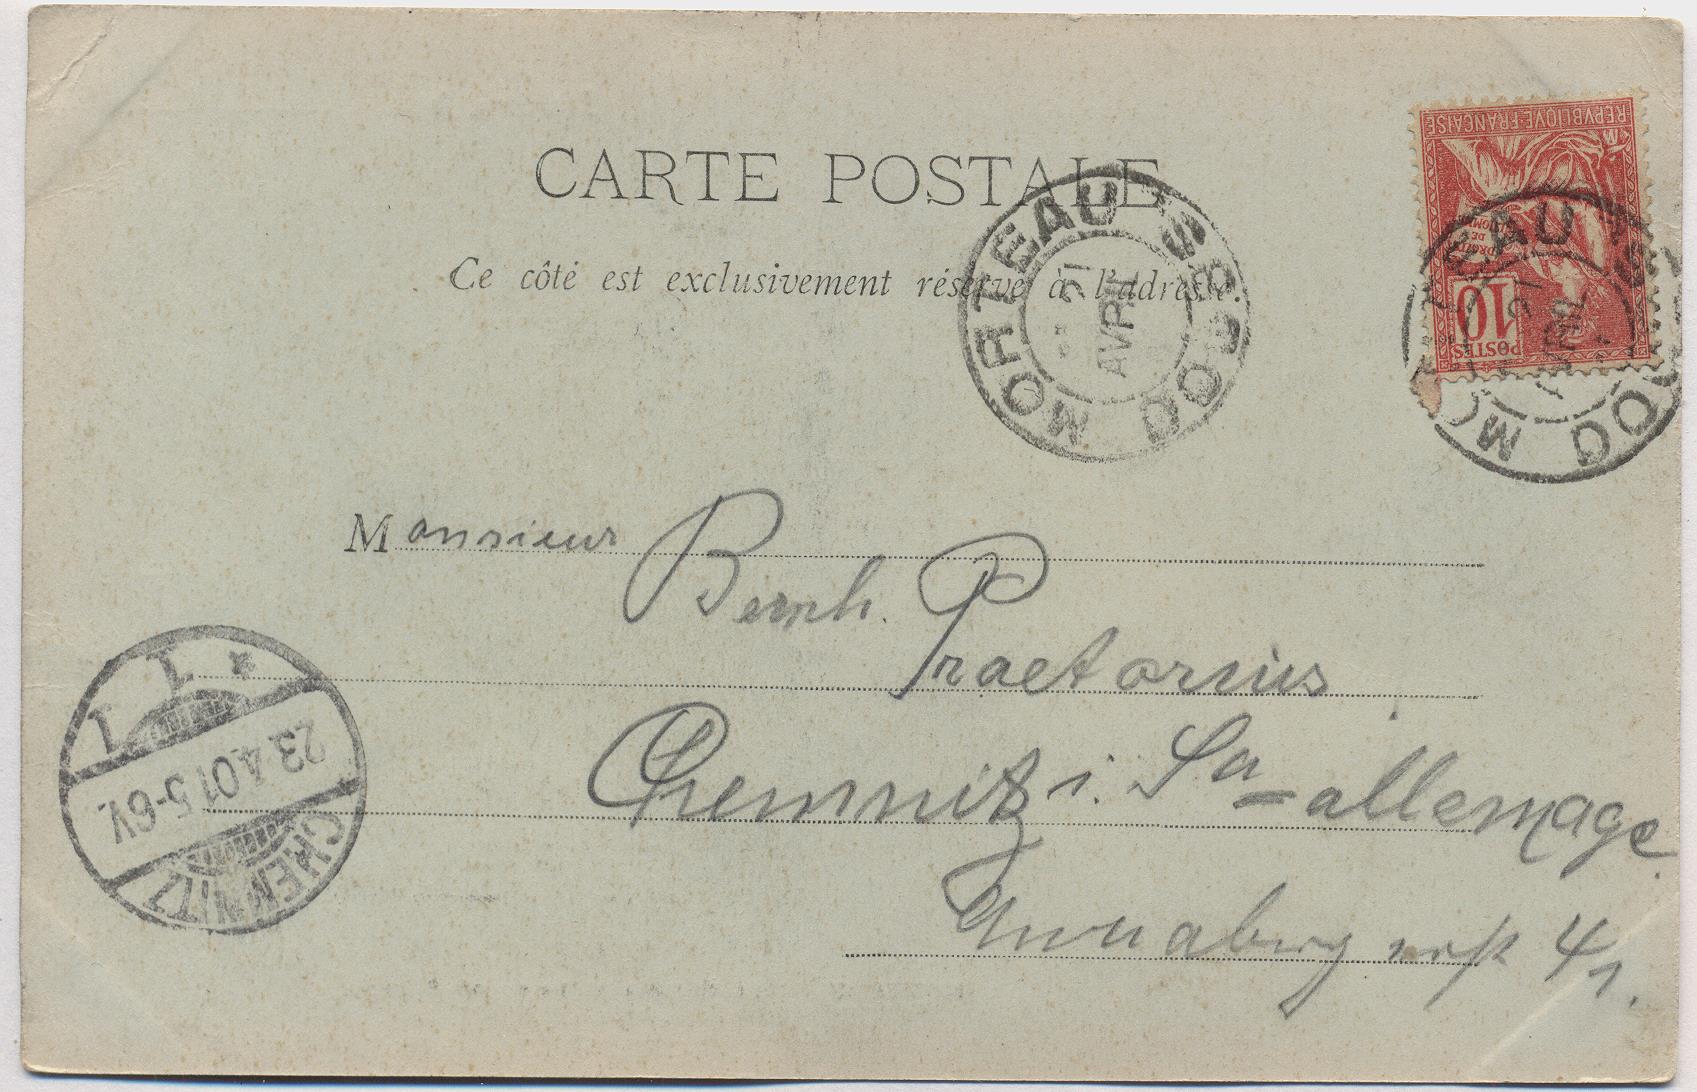 CARTE POSTALE
Ce côté est exclusivement réservé à l'adresse.
RÉPVBLIQVE FRANÇAISE
DE
10
POSTES
MORTEAU DOUBS
21
AVRIL
MORTEAU DOUBS
21
AVRIL
Monsieur Bernh. Praetorius
Chemnitz i. Sa = allemage
Annabergerstr 41.
CHEMNITZ
23.4.01 5-6V.
* 1 1